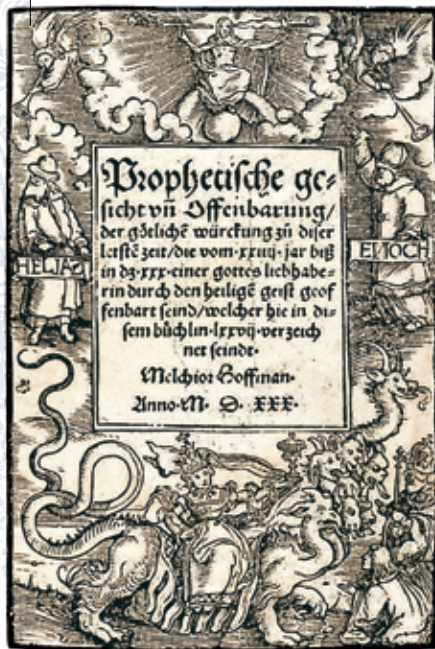 Prophetische ge⸗
sicht vñ Offenbarung/
der götlichē würckung zů diser
letstē zeit/die vom·xxiiij·jar biß
in dz·xxx·einer gottes liebhabe⸗
rin durch den heiligē geist geof
fenbart seind/welcher hie in di⸗
sem bůchlin·lxxvij·verzeich
net seindt·
Melchior Hoffman·
Anno·M· D· XXX·
HELIAS
ENOCH